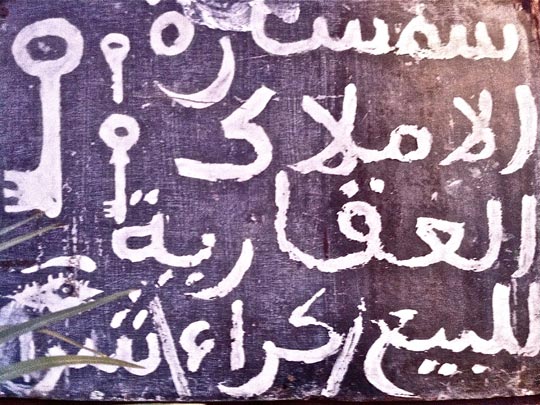 سمسارة
الاملاك
العقارية
للبيع/كراء/